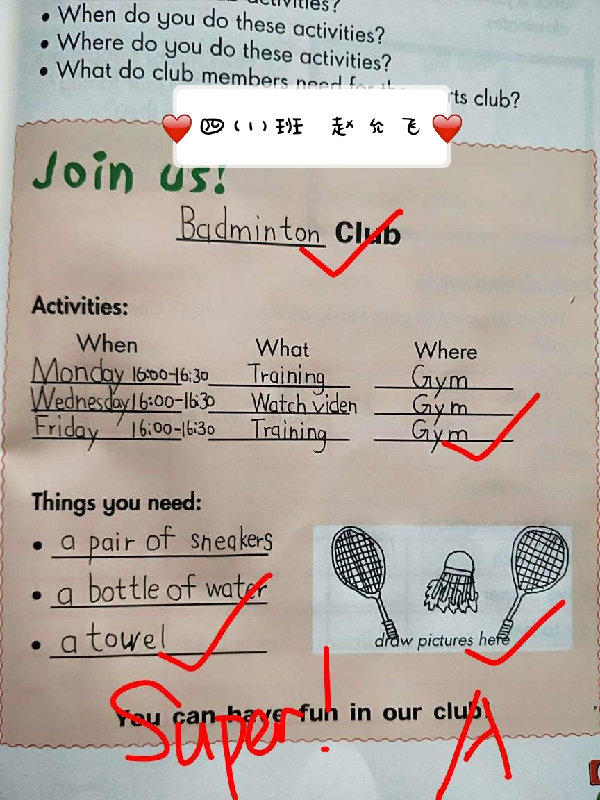 activities?
• When do you do these activities?
• Where do you do these activities?
• What do club members need for the sports club?
四(1)班 赵允飞
Join us!
Badminton Club
Activities:
When What Where
Monday 16:00-16:30 Training Gym
Wednesday 16:00-16:30 Watch viden Gym
Friday 16:00-16:30 Training Gym
Things you need:
• a pair of sneakers
• a bottle of water
• a towel
draw pictures here
You can have fun in our club!
Super! A